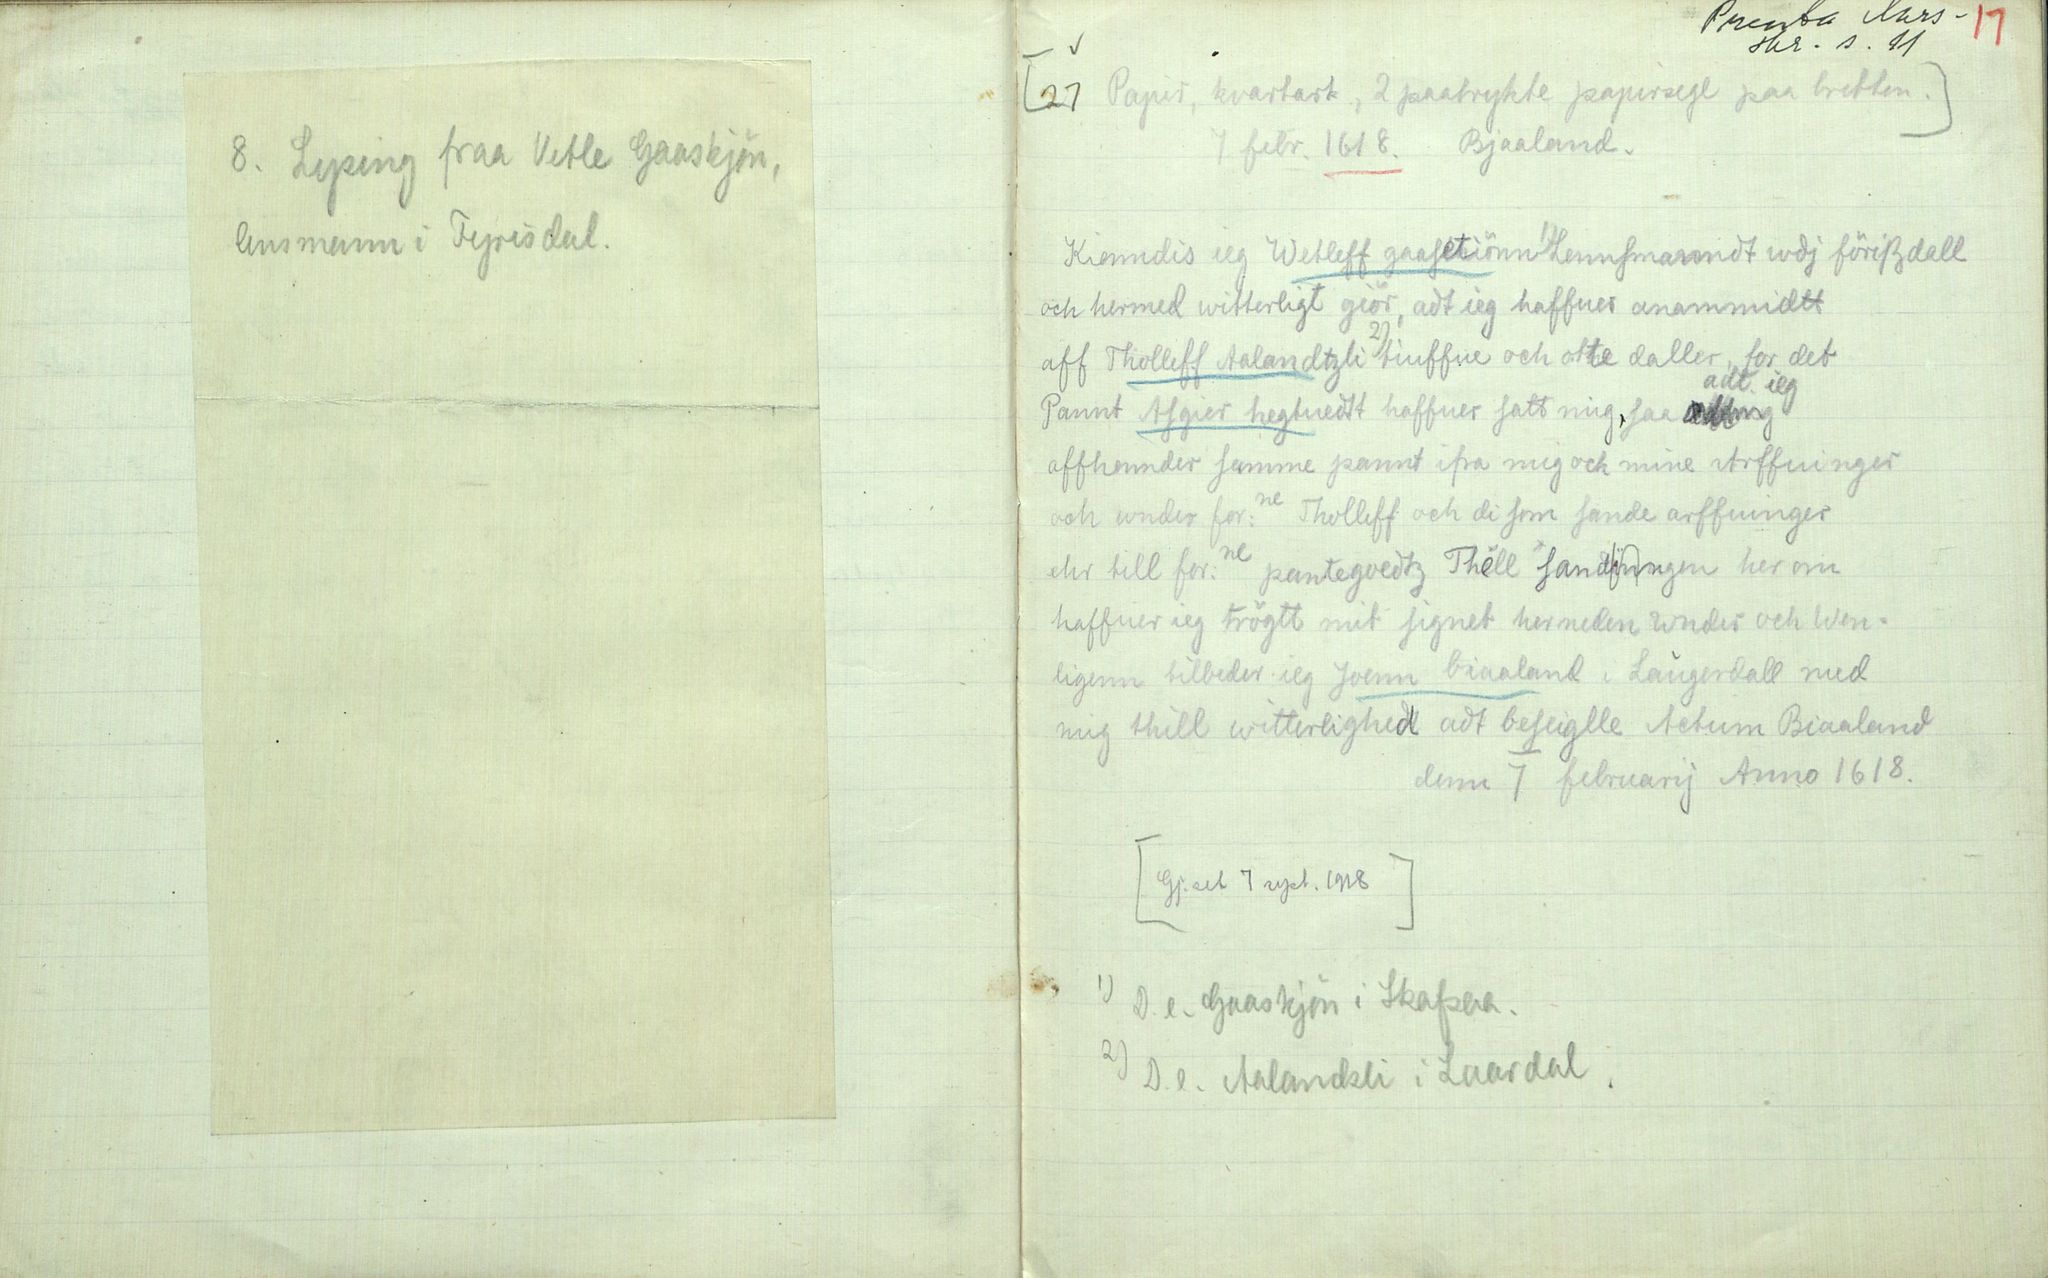 8. Lysing fraa Vetle Gaaskjön,
lensmann i Fyrisdal.
Prenta Aars-
skr. s. 41
17
[27 Papir, kvartark, 2 paatrykte papirsegl paa bretten.]
7 febr. 1618. Bjaaland.
Kienndis ieg Wetleff gaasctiönn 1) Lennsmanndt wdj förißdall
och hermed witterligt giör, adt ieg haffuer anammidtt
aff Tholleff Aalandtzli 2) tiuffue och otte daller, for det
Pannt Asgier hegtuedtt haffuer satt mig, saa adt ieg
affhennder samme pannt ifra mig och mine Arffuinger
och wnder for:ne Tholleff och di som sande arffuinger
ehr till for:ne pantegoedtz Thëll sand(in)ngen her om
haffuer ieg trögtt mit signet herneden wnder och Wen-
ligenn tilbeder ieg Joenn biaaland i Laugerdall med
mig thill witterlighed adt beseiglle Actum Biaaland
denn 7 februarij Anno 1618.
[Gj. set 7 sept. 1918]
1) D. e. Gaaskjön i Skafsaa.
2) D. e. Aalandsli i Laardal.